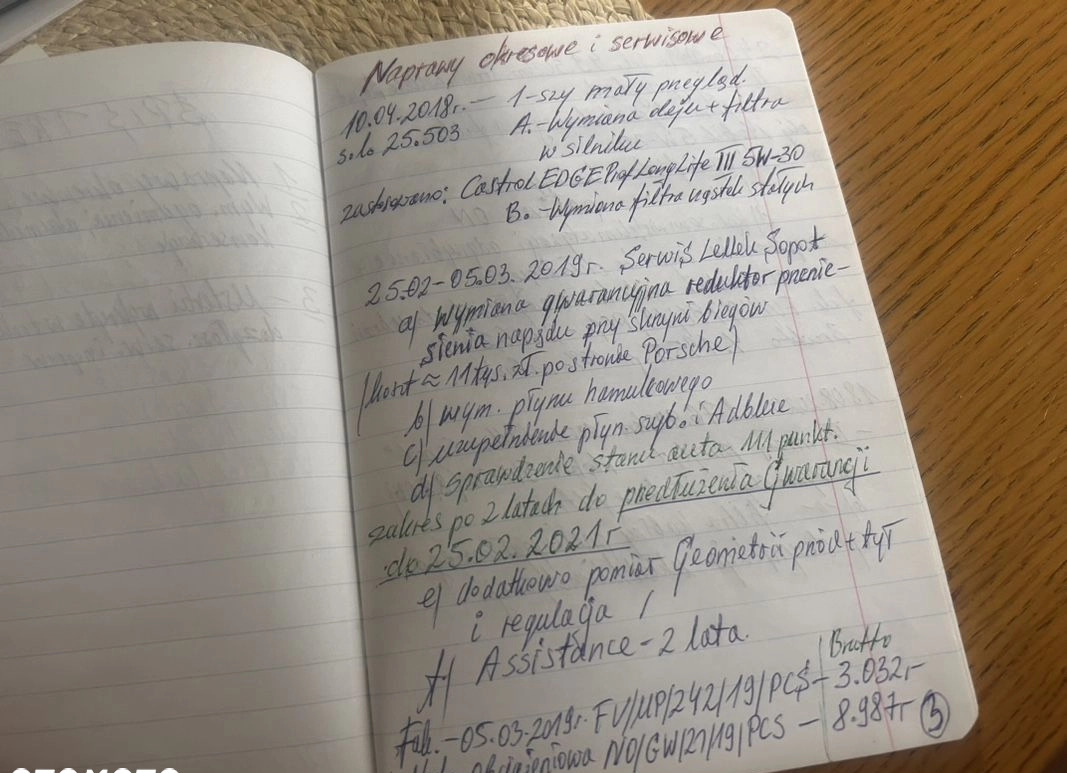 Naprawy okresowe i serwisowe
10.04.2018r. — 1-szy mały przegląd.
s.lo 25.503 A.-Wymiana oleju + filtra
w silniku
zastosowano: Castrol EDGE Prof LongLife III 5W-30
B. -Wymiana filtra cząstek stałych
25.02-05.03.2019r. Serwis Lellek Sopot
a) Wymiana gwarancyjna reduktor przenie-
sienia napędu przy skrzyni biegów
(koszt ≈ 11 tys. zł. po stronie Porsche)
b) wym. płynu hamulcowego
c) uzupełnienie płyn. szyb. i Adblue
d) Sprawdzenie stanu auta 111 punkt.
zakres po 2 latach do przedłużenia Gwarancji
do 25.02.2021r
e) dodatkowo pomiar Geometrii przód + tył
i regulacja /
f) Assistance - 2 lata.
Brutto
Fak. - 05.03.2019r. FV/UP/242/19/PCS - 3.032r
Obciążeniowa NO/GW/27/19/PCS - 8.987r
3